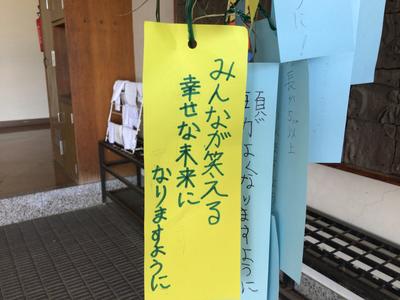 みんなが笑える
幸せな未来に
なりますように
よくなりますように
以上
に!